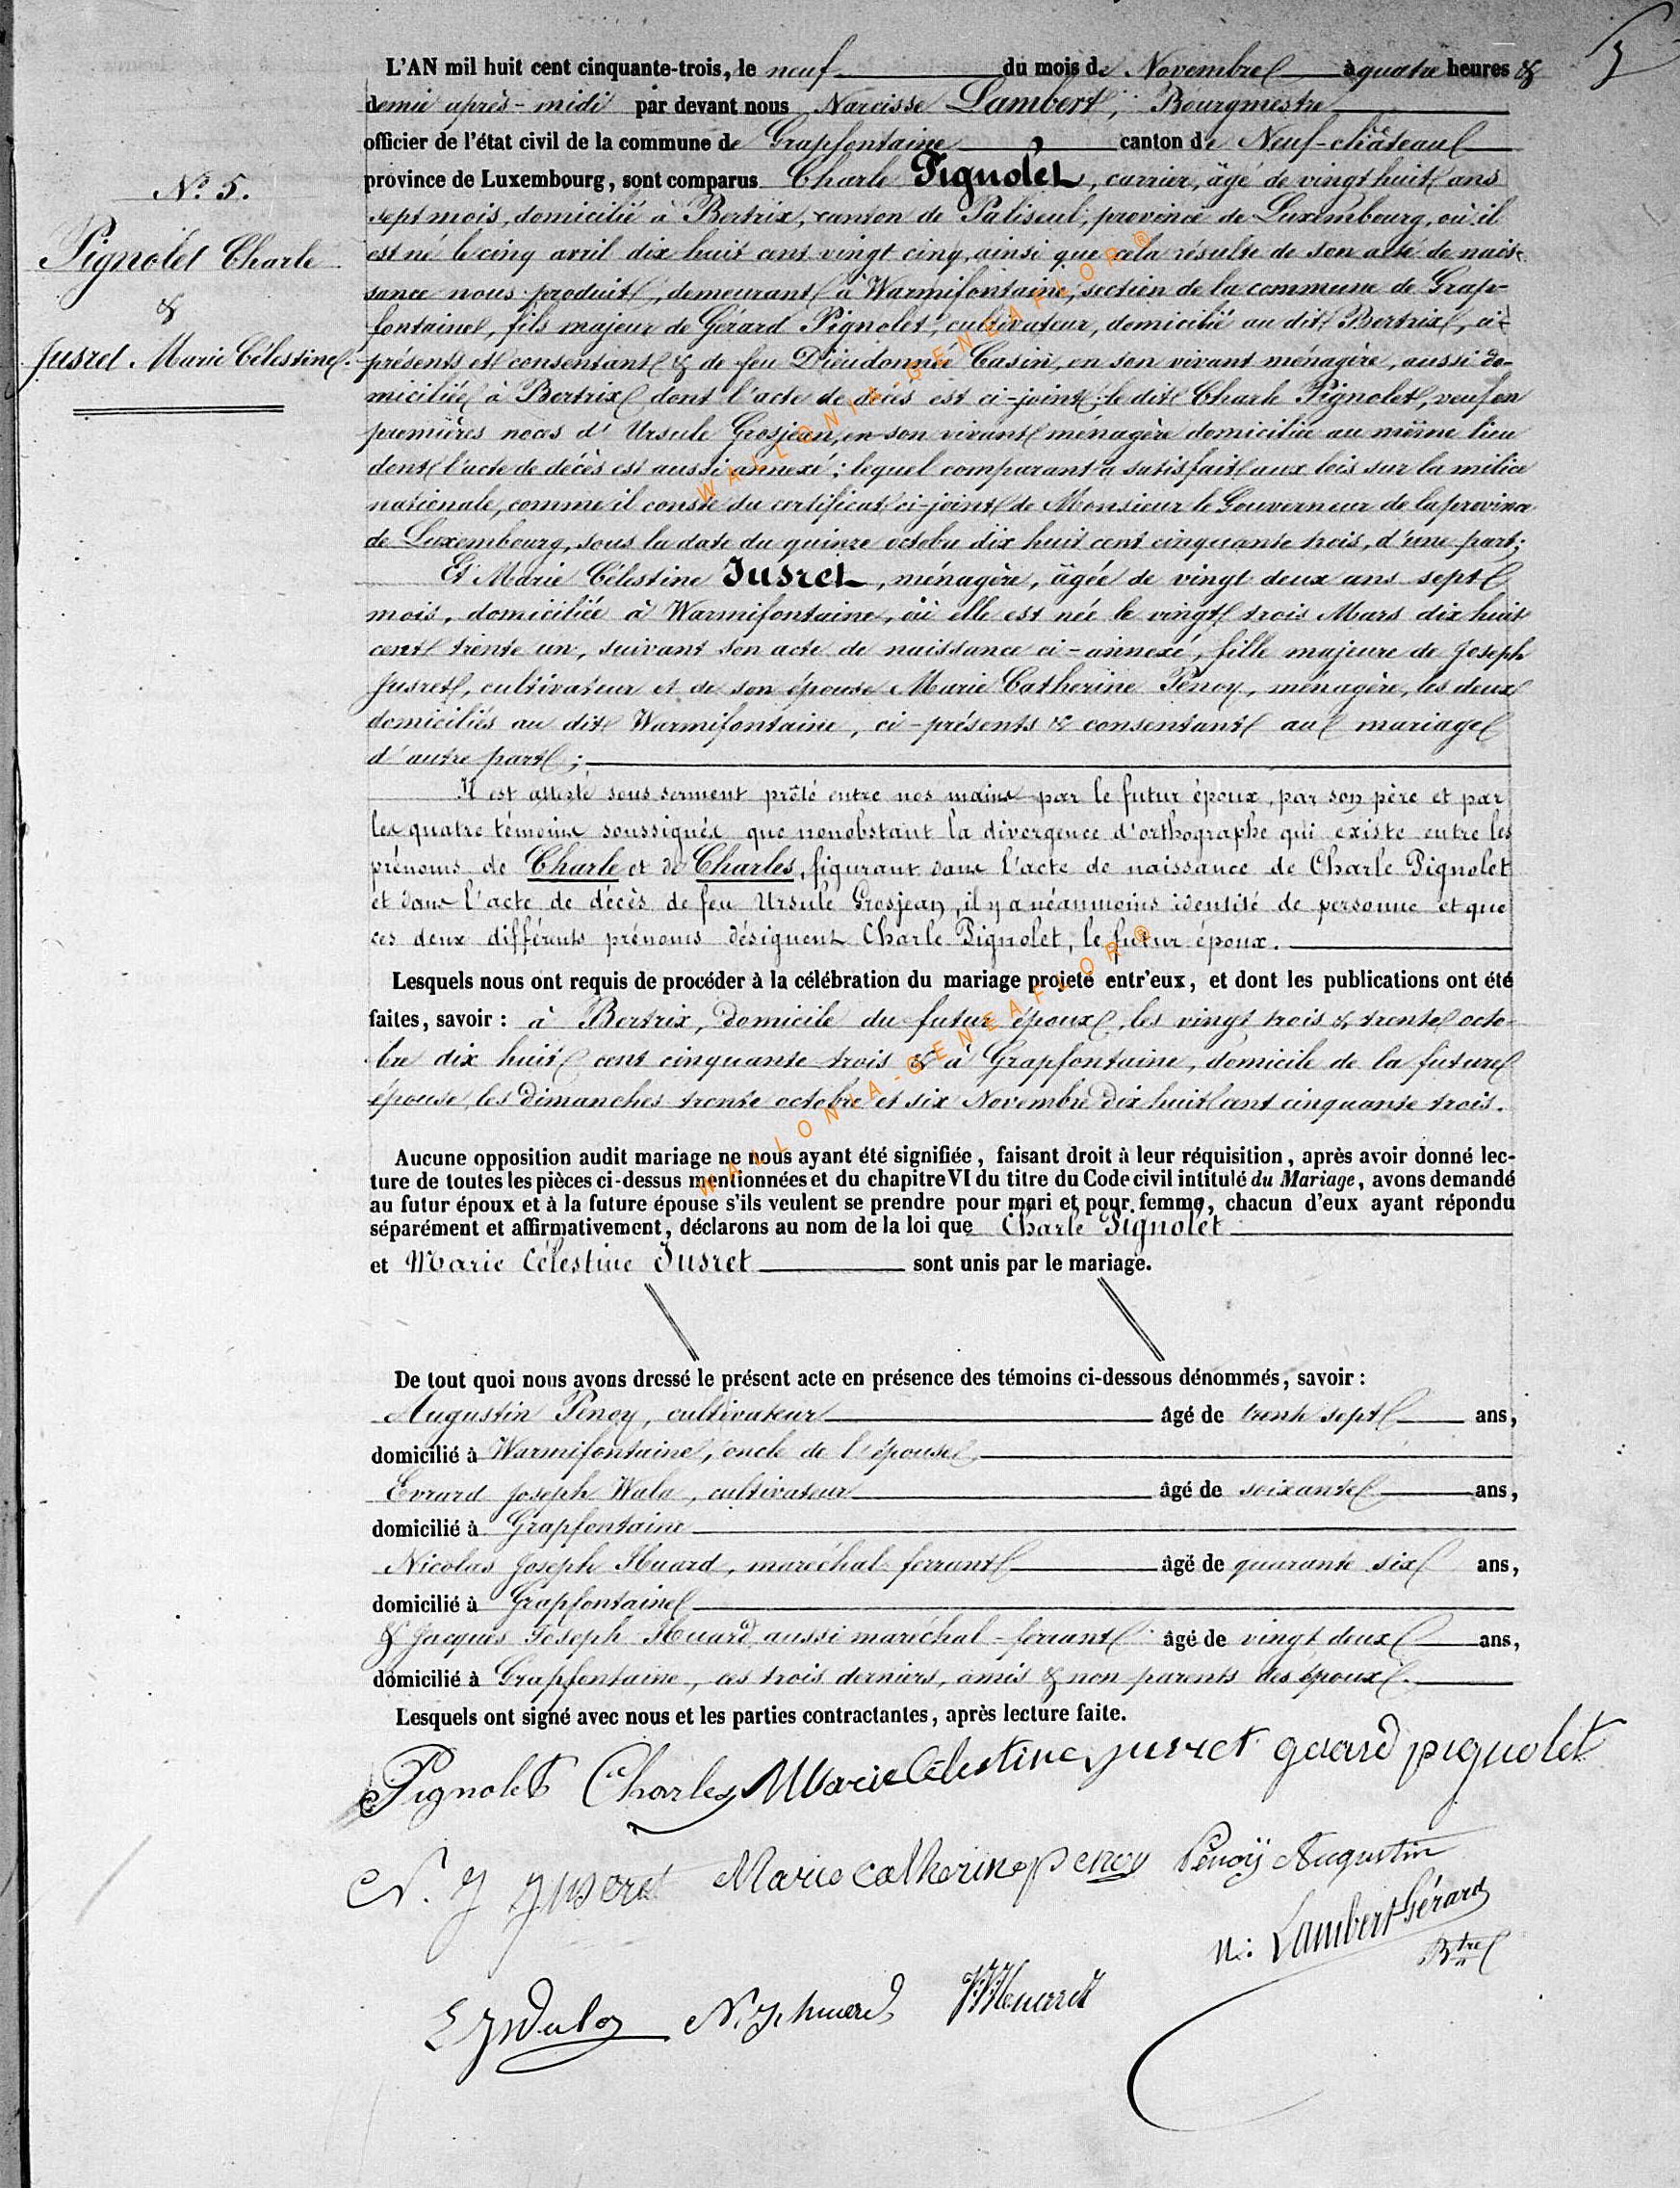 5
L'AN mil huit cent cinquante-trois, le neuf du mois de Novembre à quatre heures &
demie après-midi par devant nous Narcisse Lambert, Bourgmestre
officier de l'état civil de la commune de Grapfontaine canton de Neuf-château
province de Luxembourg, sont comparus Charle Pignolet, carrier, âgé de vingt huit ans
sept mois, domicilié à Bertrix, canton de Paliseul, province de Luxembourg, où il
est né le cinq avril dix huit cent vingt cinq, ainsi que cela résulte de son acte de nais-
sance nous produit, demeurant à Warmifontaine, section de la commune de Grap-
fontaine, fils majeur de Gérard Pignolet, cultivateur, domicilié au dit Bertrix, ci-
présents et consentant & de feu Dieudonnée Casin, en son vivant ménagère, aussi do-
miciliée à Bertrix dont l'acte de décès est ci-joint; le dit Charle Pignolet, veuf en
premières noces d'Ursule Grosjean, en son vivant menagère domiciliée au même lieu
dont l'acte de décès est aussi annexé; lequel comparant a satisfait aux lois sur la milice
nationale, comme il conste du certificat ci-joint de Monsieur le Gouverneur de la province
de Luxembourg, sous la date du quinze octobre dix huit cent cinquante trois, d'une part;
Et Marie Célestine Jusret, ménagère, âgée de vingt deux ans sept
mois, domiciliée à Warmifontaine, où elle est née le vingt trois Mars dix huit
cent trente un, suivant son acte de naissance ci-annexé, fille majeure de Joseph
Jusret, cultivateur et de son épouse Marie Catherine Penoy, ménagère, les deux
domiciliés au dit Warmifontaine, ci-présents & consentant au mariage
d'autre part;
Il est attesté sous serment prêté entre nos mains par le futur époux, par son père et par
les quatre témoins soussignés que nonobstant la divergence d'orthographe qui existe entre les
prénoms de Charle et de Charles, figurant dans l'acte de naissance de Charle Pignolet
et dans l'acte de décès de feu Ursule Grosjean, il y a néanmoins identité de personne et que
ces deux différents prénoms désignent Charle Pignolet, le futur époux.
Lesquels nous ont requis de procéder à la célébration du mariage projeté entr'eux, et dont les publications ont été
faites, savoir : à Bertrix, domicile du futur époux, les vingt trois & trente octo-
bre dix huit cent cinquante trois & à Grapfontaine, domicile de la future
épouse, les Dimanches trente octobre et six Novembre Dix huit cent cinquante trois.
Aucune opposition audit mariage ne nous ayant été signifiée, faisant droit à leur réquisition, après avoir donné lec-
ture de toutes les pièces ci-dessus mentionnées et du chapitre VI du titre du Code civil intitulé du Mariage, avons demandé
au futur époux et à la future épouse s'ils veulent se prendre pour mari et pour femme, chacun d'eux ayant répondu
séparément et affirmativement, déclarons au nom de la loi que Charle Pignolet
et Marie Célestine Jusret sont unis par le mariage.
De tout quoi nous avons dressé le présent acte en présence des témoins ci-dessous dénommés, savoir :
Augustin Penoy, cultivateur âgé de trente sept ans,
domicilié à Warmifontaine, oncle de l'épouse
Evrard Joseph Wala, cultivateur âgé de soixante ans,
domicilié à Grapfontaine
Nicolas Joseph Huard, maréchal ferrant âgé de quarante six ans,
domicilié à Grapfontaine
& Jacques Joseph Huard, aussi maréchal-ferrant âgé de vingt deux ans,
domicilié à Grapfontaine, ces trois derniers, amis & non parents des époux.
Lesquels ont signé avec nous et les parties contractantes, après lecture faite.
Pignolet Charles Marie Celestine jusret gerard pignolet
N. J Juseret Marie catherine penoy Penoÿ Augustin
N: Lambert Gérard
Btre
N. J. huard J.J. Henard
N.º 5.
Pignolet Charle
&
Jusret Marie Célestine.
WALLONIA-GENEAFLOR ®
WALLONIA-GENEAFLOR ®